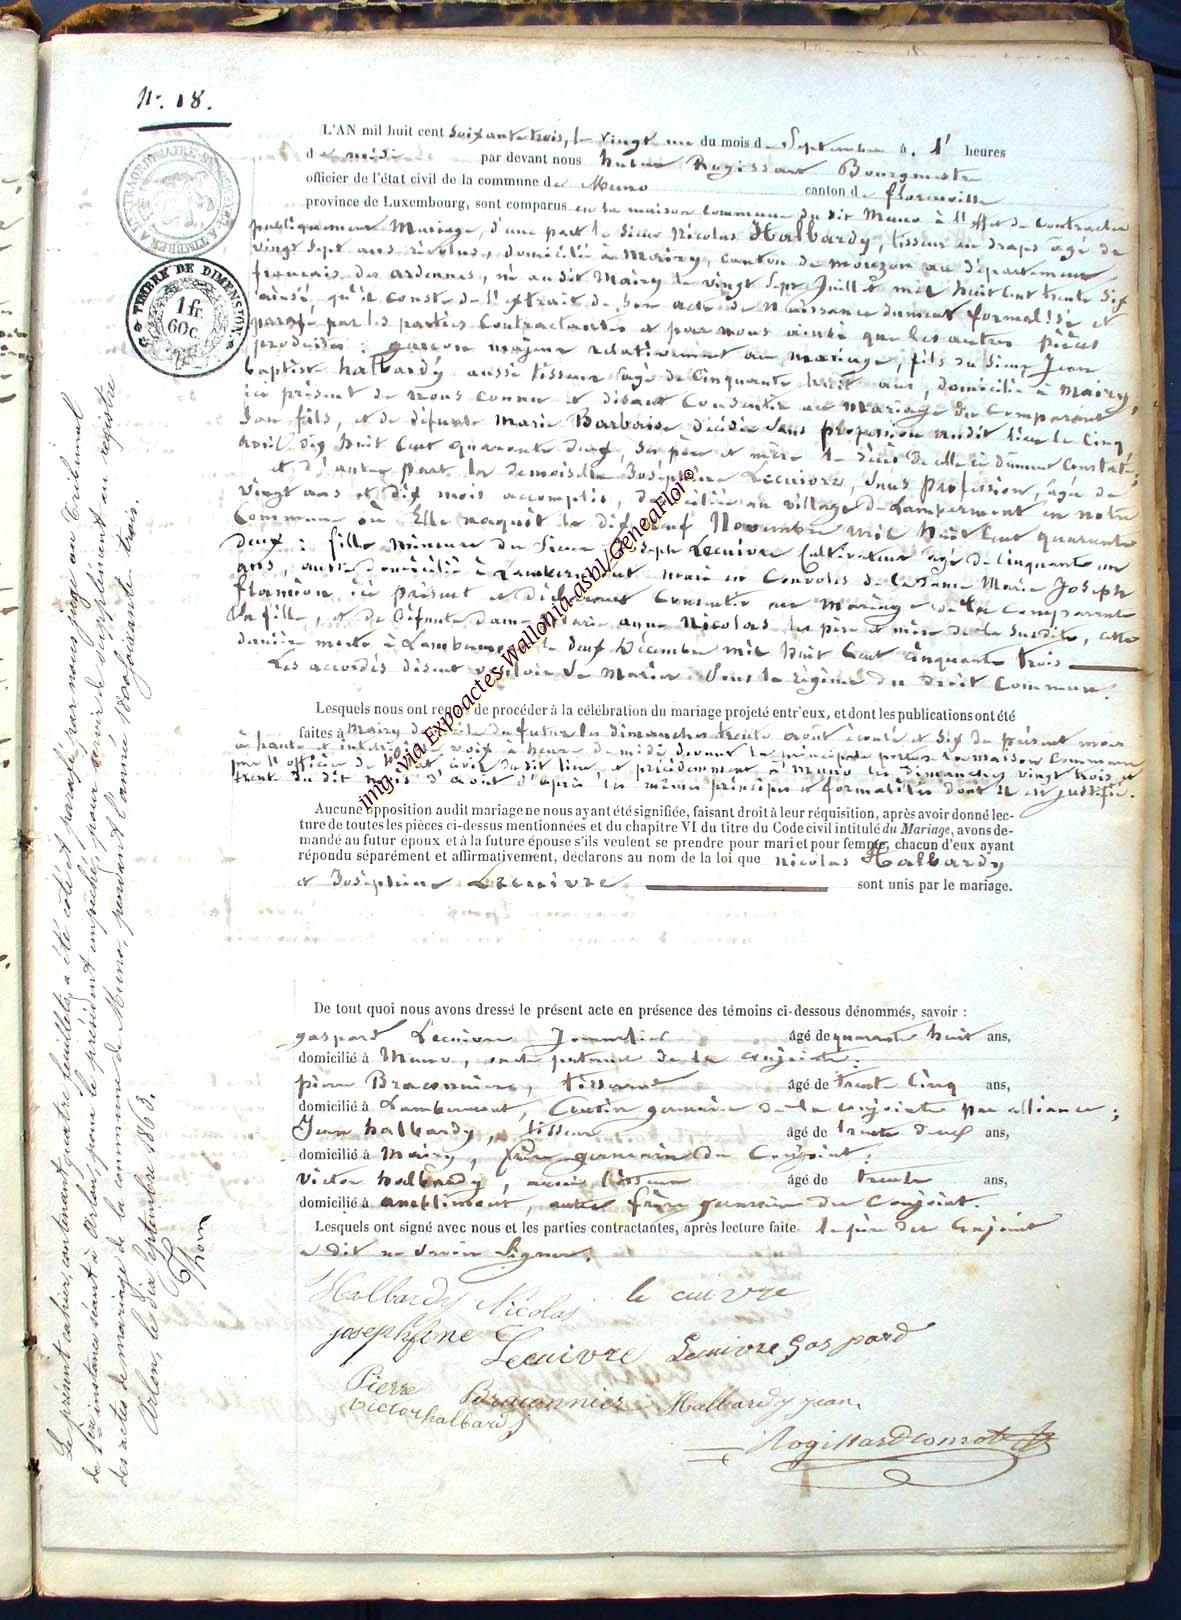 N°. 18.
L'AN mil huit cent soixante trois, le vingt un du mois de Septembre à 1 heures
de midi par devant nous hubert Rogissart Bourgmestre
officier de l'état civil de la commune de Muno canton de florenville
province de Luxembourg, sont comparus en la maison commune du dit Muno à l'effet de contracter
publiquement Mariage, d'une part le sieur Nicolas Halbardy, tisseur en draps agé de
vingt sept ans révolus, domicilié à Mairy, canton de mouzon au département
français des ardennes, né au dit Mairy le vingt sept Juillet mil huit cent trente six
ainsi qu'il conste de l'extrait de son acte de Naissance dument formalisé et
parafé par les parties Contractantes et par nous ainsi que les autres pièces
produites : garçon majeur relativement au mariage, fils du sieur Jean
baptiste halbardy aussi tisseur agé de Cinquante huit ans, domicilié à Mairy,
ici présent de nous connu et disant Consentir au Mariage du Comparant
son fils, et de défunte Marie Barbaise décédée sans profession audit lieu le Cinq
avril dix huit Cent quarante deux, ses père et mère le décès de celle ci dûment Constaté ;
et d'autre part la demoiselle Joséphine Lecuivre, sans profession, agée de
vingt ans et dix mois accomplis, domiciliée au village de Lambermont en notre
Commune où Elle naquit le dix neuf Novembre mil huit Cent quarante
deux ; fille mineure du Sieur Joseph Lecuivre Cultivateur agé de Cinquante un
ans, aussi domicilié à Lambermont marié en Convoles de la Dame Marie Joseph
ici présent et déclarant Consentir au Mariage de la Comparante
Sa fille, et de défunte dame Marie anne Nicolas les père et mère de la susdite, cette
dernière morte à Lambermont le deux Décembre mil huit Cent cinquante trois
Les accordés disent vouloir se Marier sous le régime du droit Commun.
Lesquels nous ont requis de procéder à la célébration du mariage projeté entr'eux, et dont les publications ont été
faites à Mairy domicile du futur les dimanches trente août écoulé et six du présent mois
à haute et intelligible voix à heure de midi devant la principale porte de la maison Commune
par l'officier de l'état civil du dit lieu, et précédemment à Muno les dimanches vingt trois et
trente du dit mois d'août d'après les mêmes principes et formalités dont il est justifié.
Aucune opposition audit mariage ne nous ayant été signifiée, faisant droit à leur réquisition, après avoir donné lec-
ture de toutes les pièces ci-dessus mentionnées et du chapitre VI du titre du Code civil intitulé du Mariage, avons de-
mandé au futur époux et à la future épouse s'ils veulent se prendre pour mari et pour femme, chacun d'eux ayant
répondu séparément et affirmativement, déclarons au nom de la loi que Nicolas Halbardy
et Joséphine Lecuivre sont unis par le mariage.
De tout quoi nous avons dressé le présent acte en présence des témoins ci-dessous dénommés, savoir :
gaspard Lecuivre Journalier âgé de quarante huit ans,
domicilié à Muno, oncle paternel de la conjointe.
pierre Braconnier, tisserand âgé de trente Cinq ans,
domicilié à Lambermont, Cousin germain de la conjointe par alliance ;
Jean halbardy, tisseur âgé de trente deux ans,
domicilié à Mairy, frère germain du Conjoint ;
victor halbardy, aussi tisseur âgé de trente ans,
domicilié à amblimont, autre frère germain du Conjoint.
Lesquels ont signé avec nous et les parties contractantes, après lecture faite. le père du Conjoint
a dit ne savoir Signer.
Halbardy Nicolas le cuivre
josephine Lecuivre Lecuivre Gaspard
Pierre Braconnier Halbardy jean
victor halbardy
Rogissart
TIMBRE DE DIMENSION
1 fr.
60 c.
Le présent cahier, contenant quatre feuillets, a été coté et paraphé par nous juge au Tribunal
de 1ère instance séant à Arlon, pour le président empêché, pour servir de supplément au registre
des actes de mariage de la commune de Muno, pendant l'année 1800 soixante-trois.
Arlon, le dix septembre 1863.
img. via Expoactes-Wallonia-asbl/GeneaFloi ©